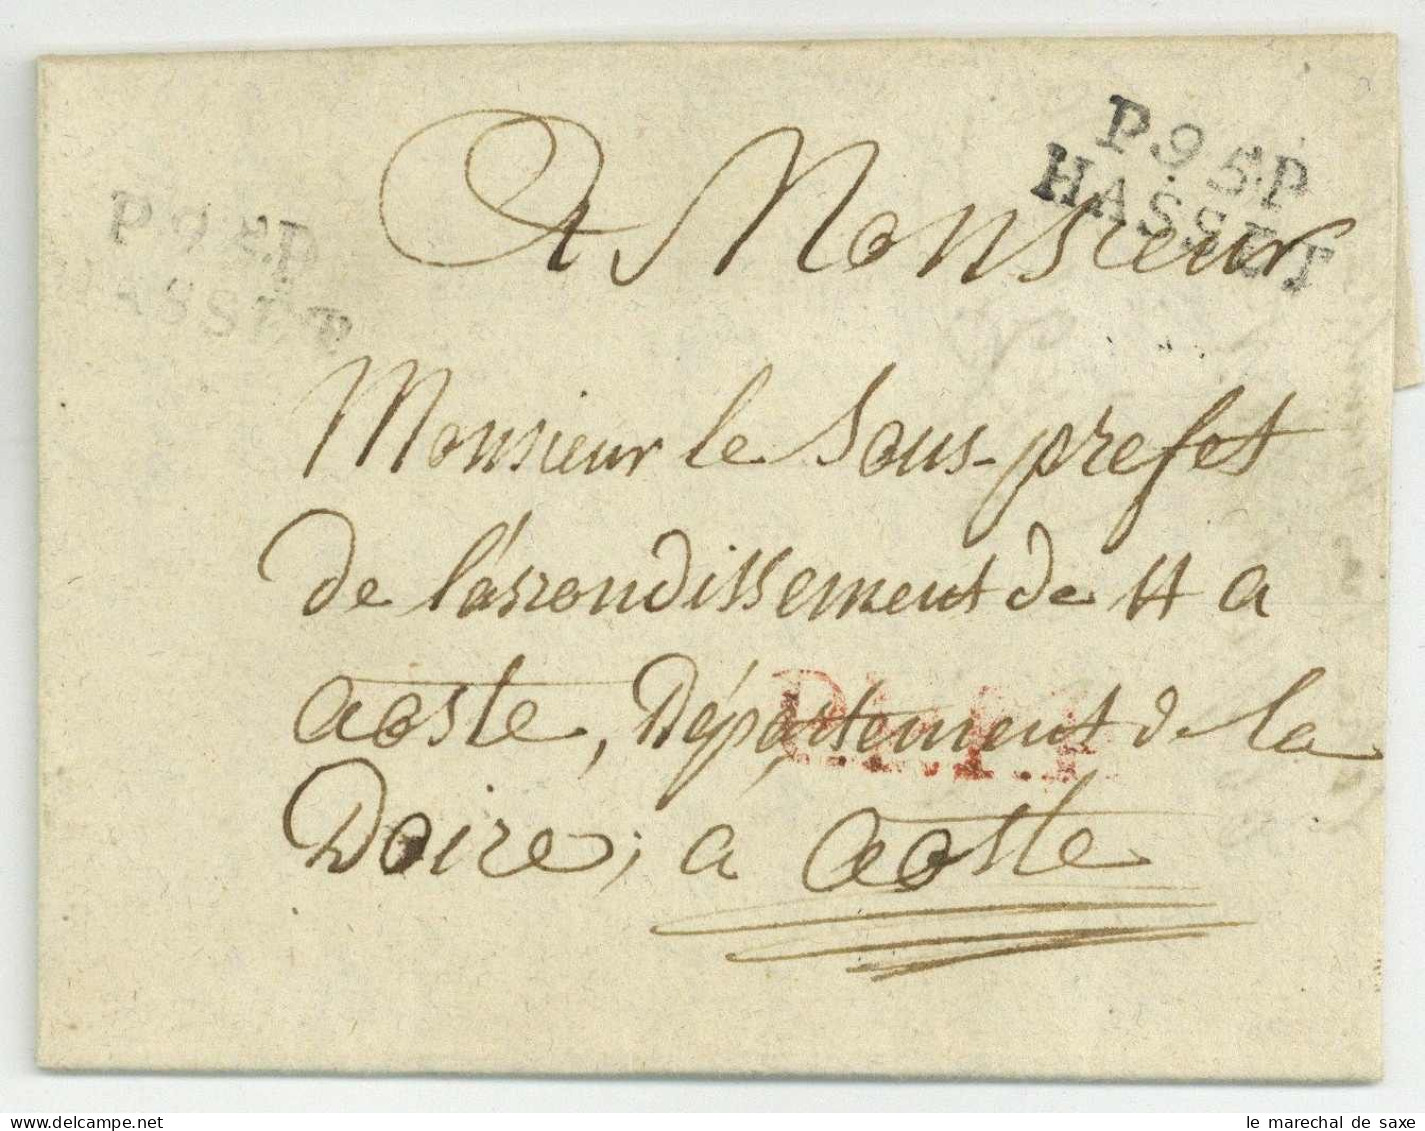 P.95.P
HASSET
P.95.P
HASSET
A Monsieur
Monsieur le Sous-prefet
de l'arrondissement de
aoste, Département de la
Doire, a aoste
le marechal de saxe
delcampe.net